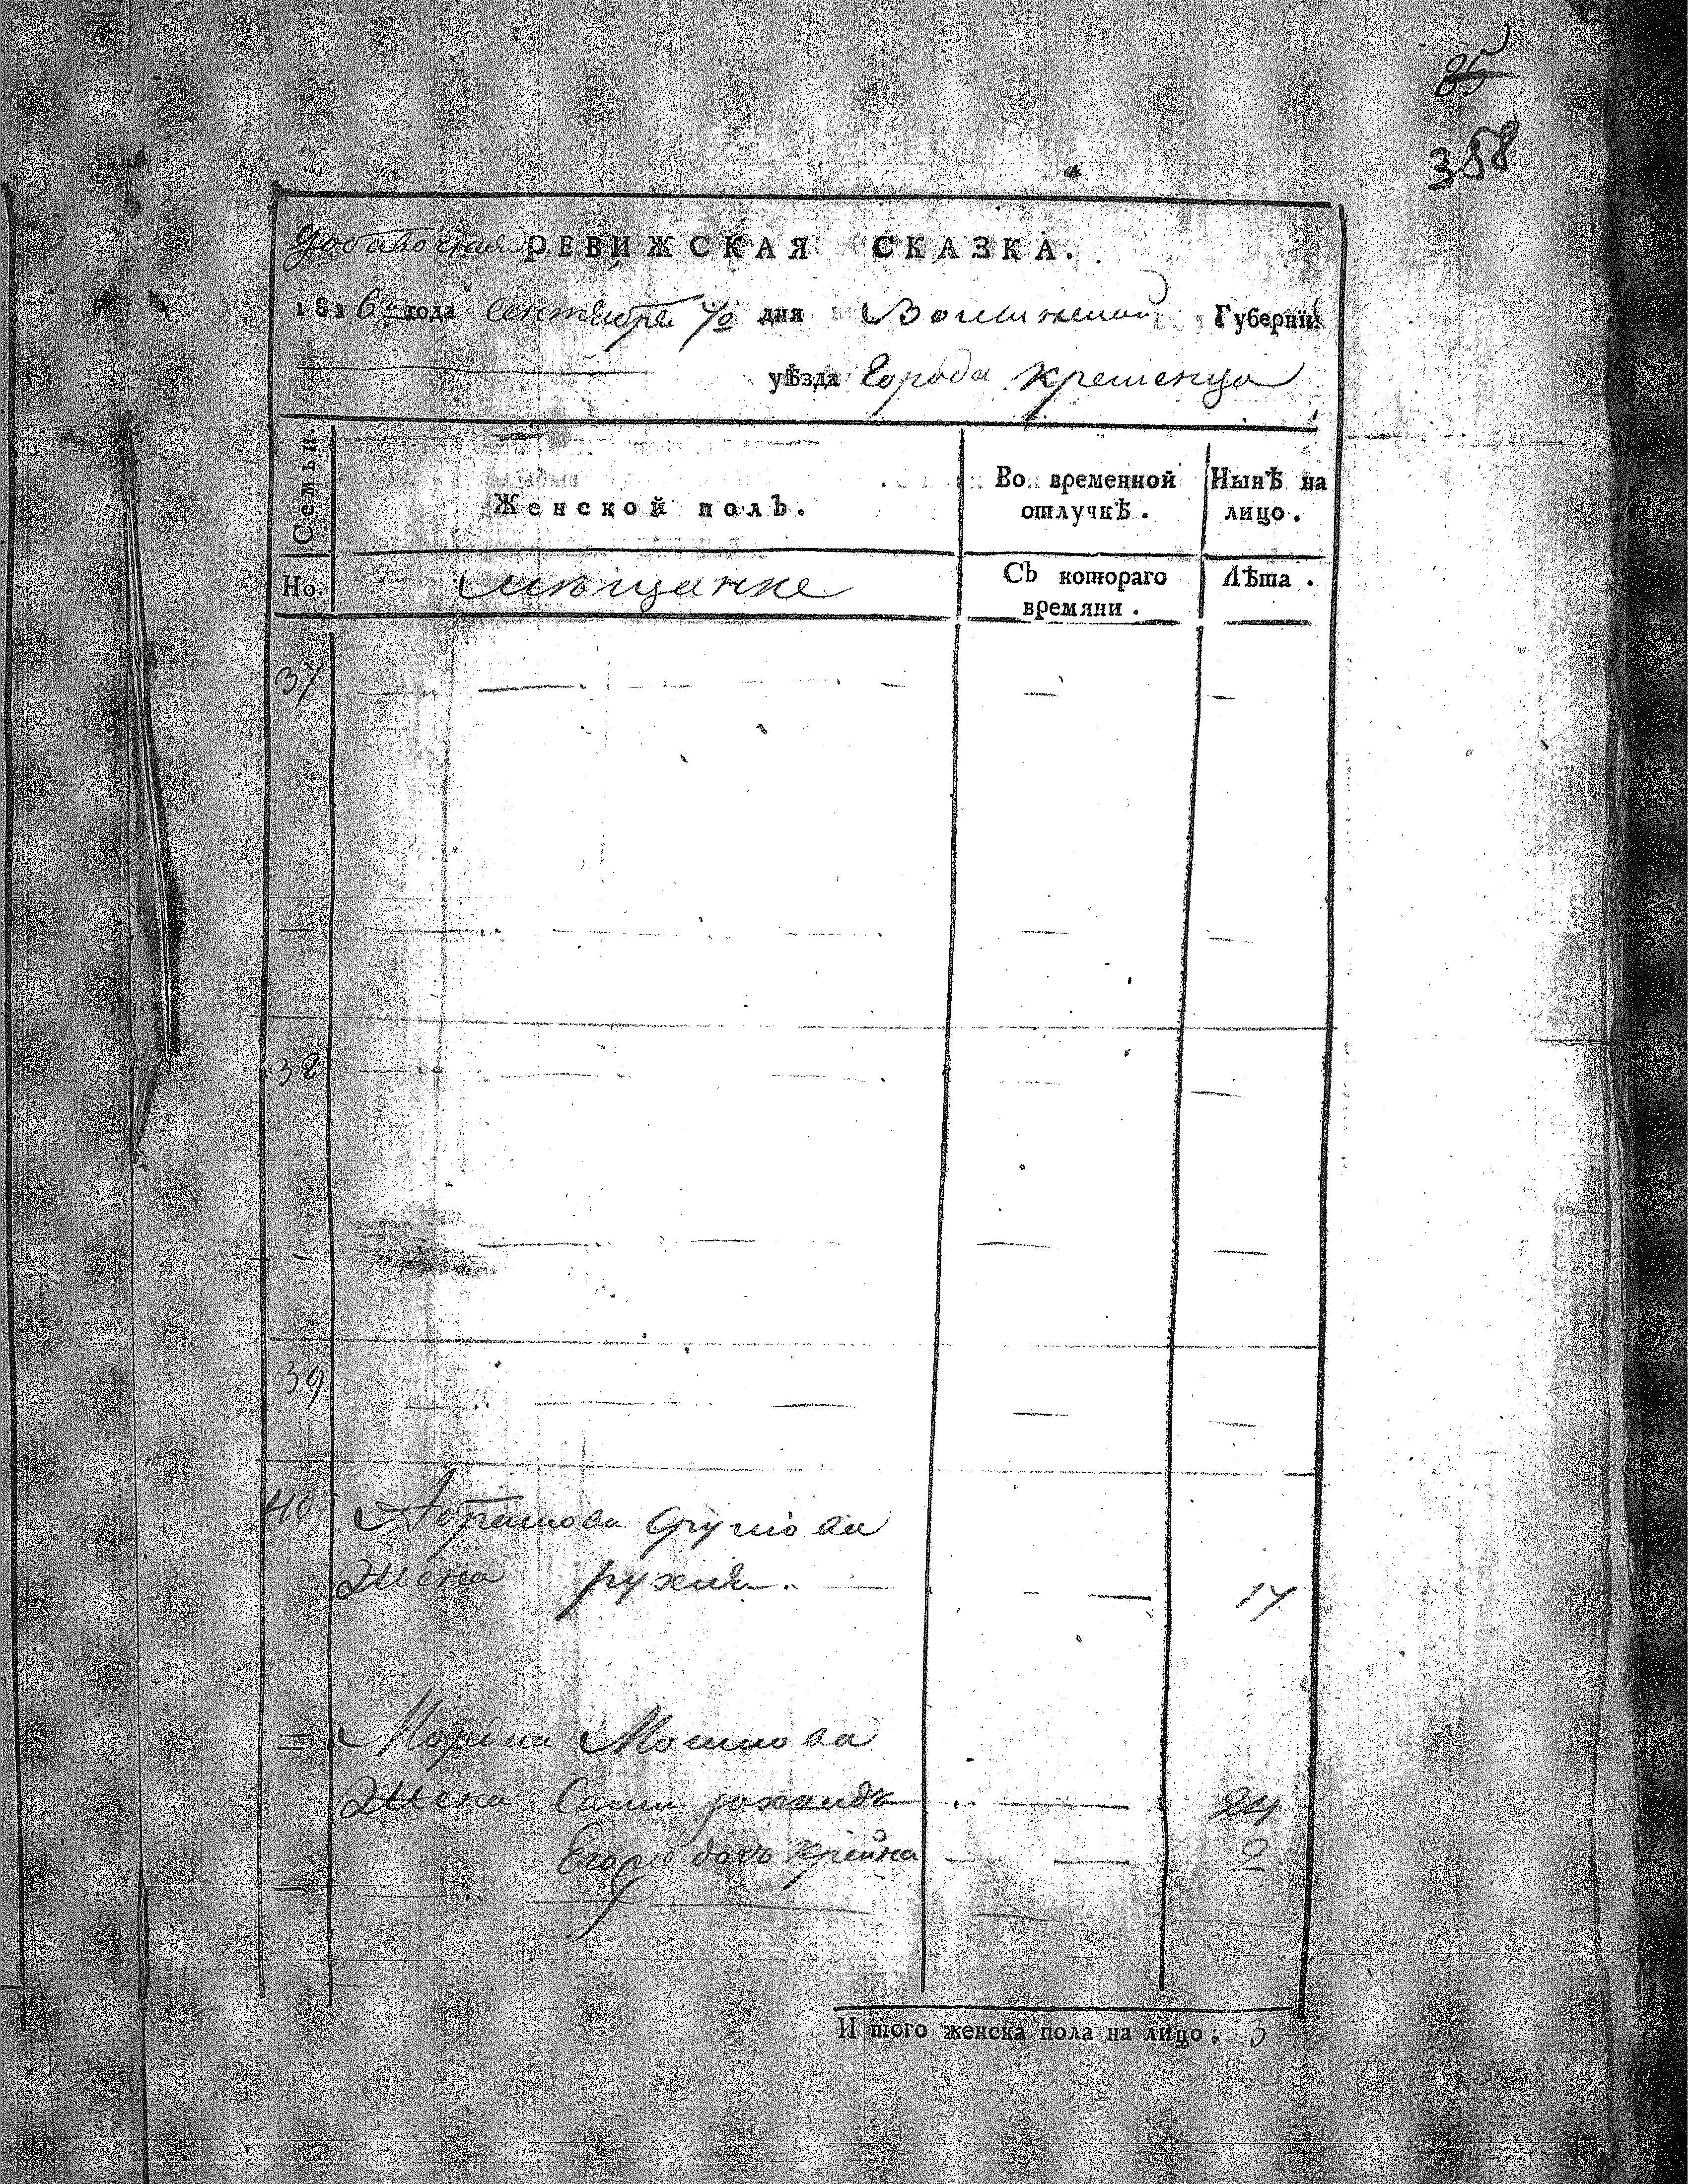 85
358
добавочная РЕВИЖСКАЯ СКАЗКА.
1816 года сентября дня Волынской Губернїи
уѣзда города кременца
Семьи. Женской полъ. Во временной отлучкѣ. Нынѣ на лицо.
Но. мѣщанке Съ котораго времяни. Лѣта.
37 — — — —
— — — — —
38 — — — —
- — — — —
39 — — — —
40 Абрамова
Жена рухля — 17
= Мордка Мошкова
Жена — 24
Егоже дочь крейна — — 2
— — — —
И того женска пола на лицо: 3